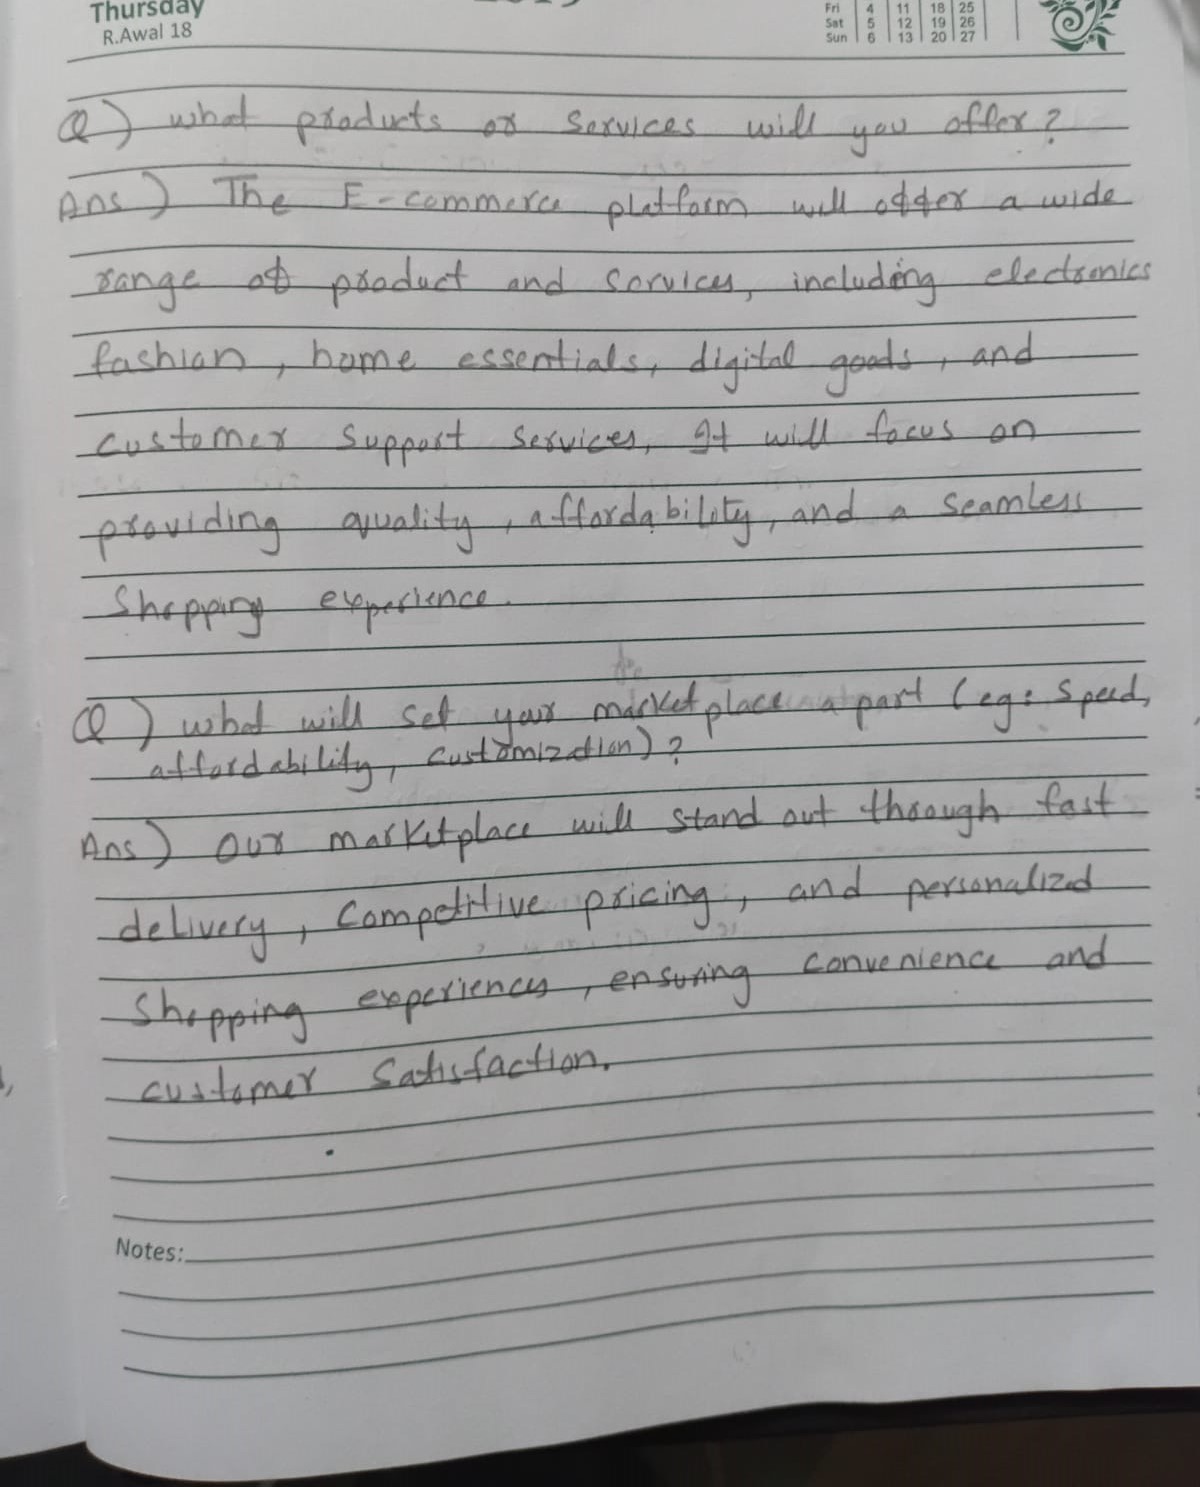 Thursday
R.Awal 18
Fri 4 11 18 25
Sat 5 12 19 26
Sun 6 13 20 27
Q) what products or services will you offer?
Ans) The E-commerce platform will offer a wide
range of product and services, including electronics
fashion, home essentials, digital goods, and
customer support services, It will focus on
providing quality, affordability, and a seamless
Shopping experience.
Q) what will set your marketplace apart (eg: speed,
affordability, customization)?
Ans) Our marketplace will stand out through fast
delivery, competitive pricing, and personalized
Shopping experiences, ensuring convenience and
customer Satisfaction.
Notes: